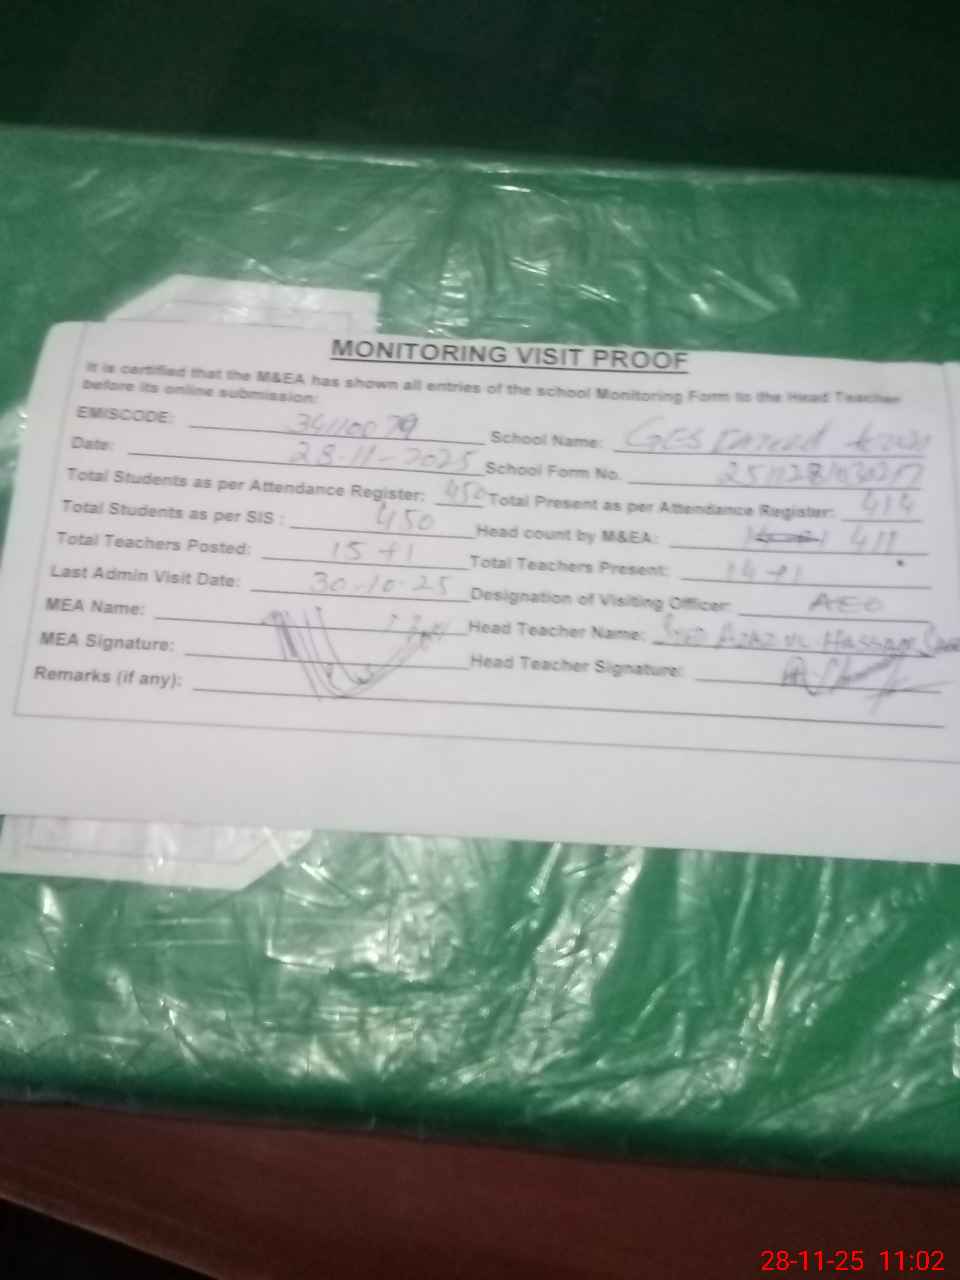 MONITORING VISIT PROOF
It is certified that the M&EA has shown all entries of the school Monitoring Form to the Head Teacher
before its online submission:
EMISCODE: 34110079 School Name: GES
Date: 28-11-2025 School Form No.
Total Students as per Attendance Register: 450 Total Present as per Attendance Register: 414
Total Students as per SIS : 450 Head count by M&EA: 411
Total Teachers Posted: 15+1 Total Teachers Present: 14+1
Last Admin Visit Date: 30-10-25 Designation of Visiting Officer: AEO
MEA Name: Head Teacher Name: Hassan
MEA Signature: Head Teacher Signature:
Remarks (if any):
28-11-25 11:02